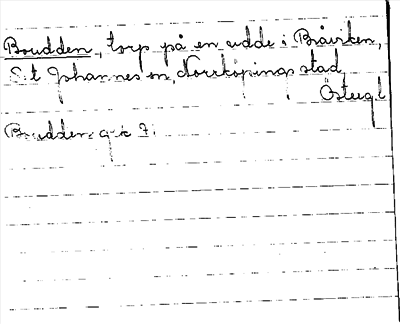 Boudden, torp på en udde i Bråviken,
S:t Johannes sn, Norrköpings stad,
Östergl
Boudden